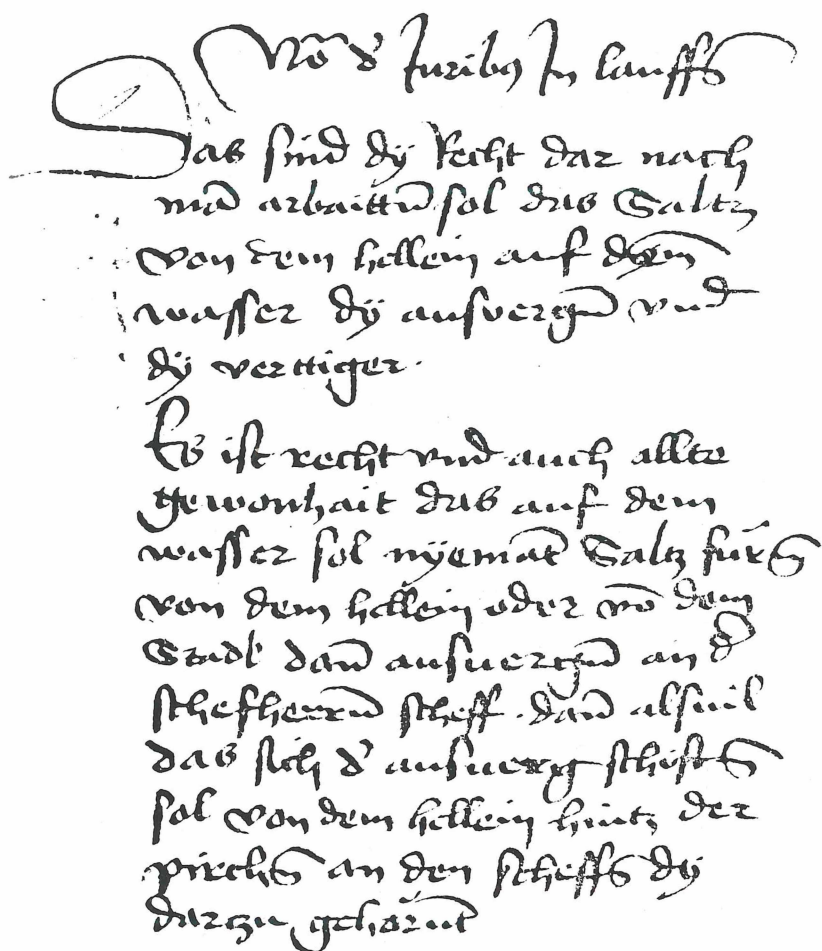 Vō d' Juribꝫ Jn lauffn̄
Das sind dÿ Recht dar nach
mā arbaittn̄ sol das Saltz
von dem hellein auf dem
wasser dÿ ausuergn̄ vnd
dÿ verttiger.
Es ist recht vnd auch allte
gewonhait das auf dem
wasser sol nÿemāt Saltz fürn̄
von dem hellein oder vō dem
Stadl dan̄ ausuergn̄ an d'
schefherrn̄ scheff. dan̄ alsuil
das sich d' ausuerg schiftn̄
sol von dem hellein hintz der
pirchn̄ an den scheffn̄ dÿ
darczu gehörn̄t